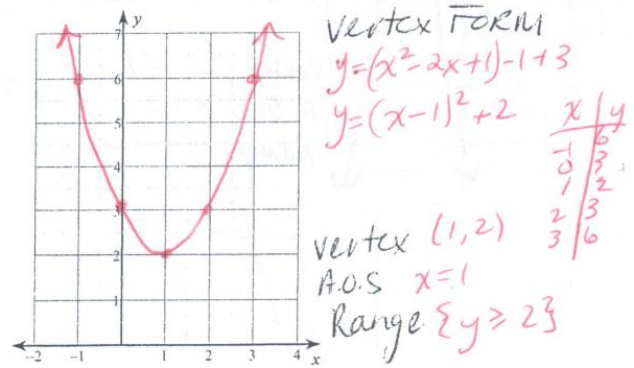 y
7
6
5
4
3
2
1
-2 -1 1 2 3 4 x
Vertex FORM
y=(x²-2x+1)-1+3
y=(x-1)²+2
x | y
-1 | 6
0 | 3
1 | 2
2 | 3
3 | 6
vertex (1,2)
A.O.S x=1
Range {y≥2}